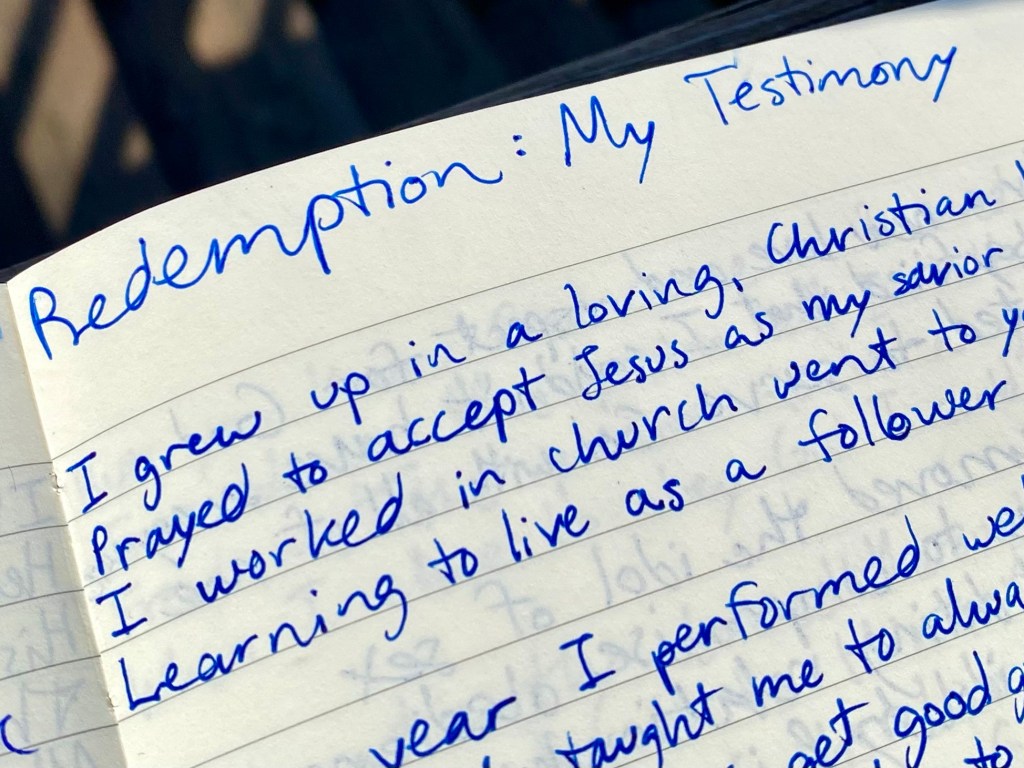 Redemption: My Testimony
I grew up in a loving, Christian
Prayed to accept Jesus as my savior
I worked in church went to
Learning to live as a follower
year I performed
taught me to
get good
to